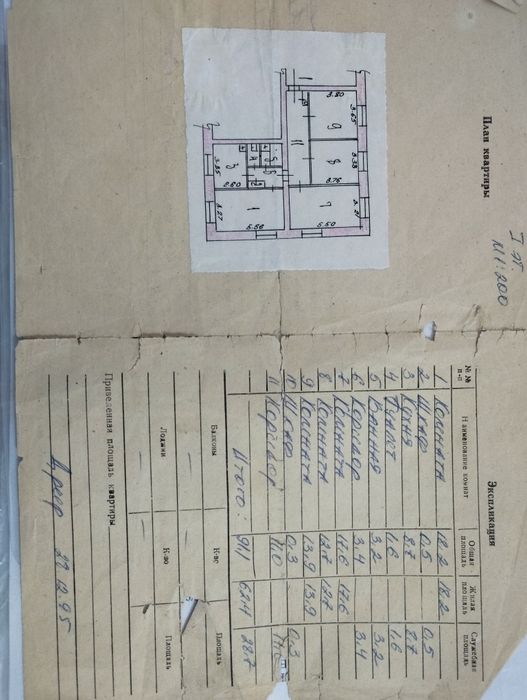 План квартиры
I эт.
М 1:200
3.80
3.65
9
3.33
8
3.76
11
10
3.35
3
2.80
4
5
6
2
3.27
1
5.56
7
5.50
Экспликация
№ № п-п Наименование комнат Общая площадь Жилая площадь Служебная площадь
1 Комната 18.2 18.2
2 Шкаф 0.5 0.5
3 Кухня 8.7 8.7
4 Туалет 1.6 1.6
5 Ванная 3.2 3.2
6 Коридор 3.4 3.4
7 Комната 17.6 17.6
8 Комната 12.7 12.7
9 Комната 13.9 13.9
10 Шкаф 0.3 0.3
11 Коридор 11.0
Итого: 91.1 62.4 28.7
Балконы К-во Площадь
Лоджии К-во Площадь
Приведенная площадь квартиры
27.12.95